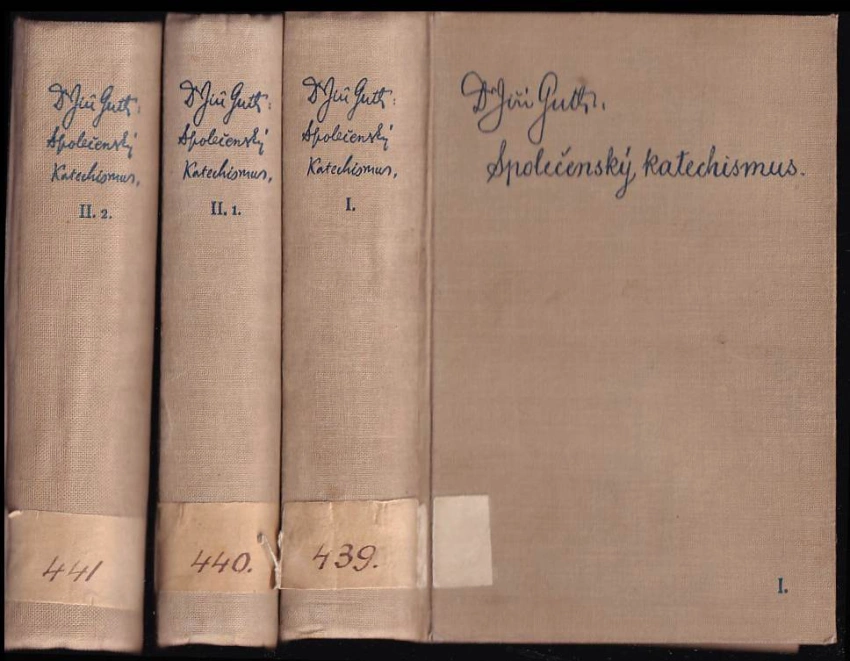 Dr Jiří Guth:
Společenský
Katechismus,
II. 2.
441
Dr Jiří Guth:
Společenský
Katechismus,
II. 1.
440.
Dr Jiří Guth:
Společenský
Katechismus,
I.
439.
Dr Jiří Guth.
Společenský katechismus.
I.